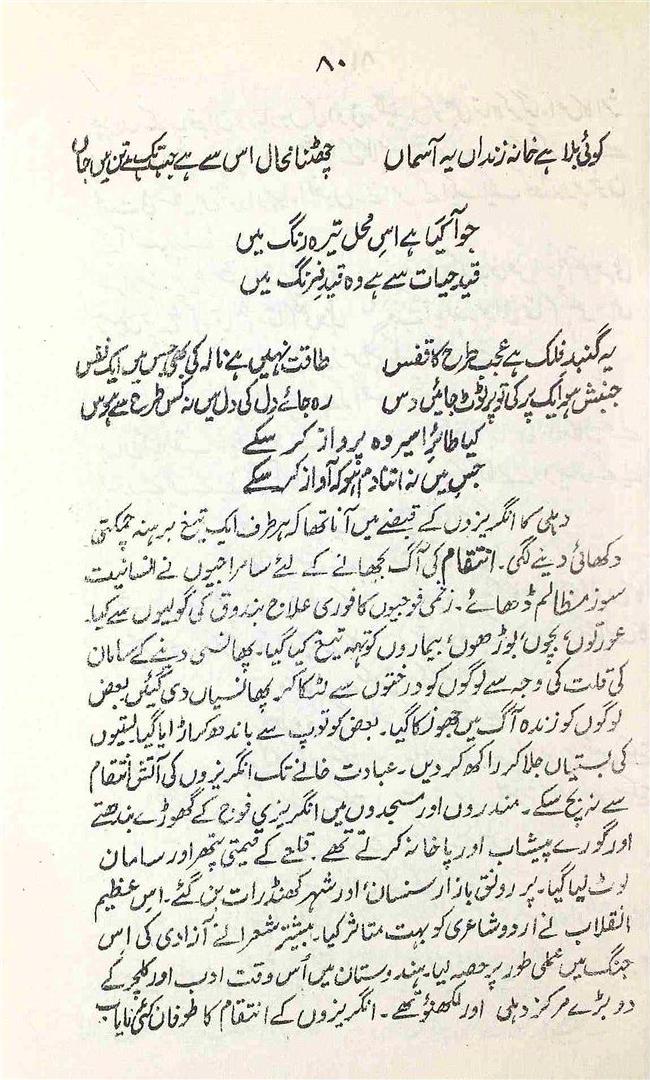 ۸۰
کوئی بلا ہے خانہ زنداں یہ آسماں چھٹنا محال اس سے ہے جب تک ہے تن میں جاں
جو آ گیا ہے اس محل تیرہ رنگ میں
قید حیات سے ہے وہ قید فرنگ میں
یہ گنبد فلک ہے عجب طرح کا قفس طاقت نہیں ہے نالہ کی بھی جس میں ایک نفس
جنبش ہو ایک پر کی تو پر ٹوٹ جائیں دس رہ جائے دل کی دل میں نہ کس طرح سے ہوس
کیا طائر اسیر وہ پرواز کر سکے
جس میں نہ اتنا دم ہو کہ آواز کر سکے
دہلی کا انگریزوں کے قبضے میں آنا تھا کہ ہر طرف ایک تیغ برہنہ چمکتی
دکھائی دینے لگی۔ انتقام کی آگ بجھانے کے لئے سامراجیوں نے انسانیت
سوز مظالم ڈھائے۔ زخمی فوجیوں کا فوری علاج بندوق کی گولیوں سے کیا۔
عورتوں، بچوں، بوڑھوں، بیماروں کو تہہ تیغ کیا گیا۔ پھانسی دینے کے سامان
کی قلت کی وجہ سے لوگوں کو درختوں سے لٹکا کر پھانسیاں دی گئیں بعض
لوگوں کو زندہ آگ میں جھونکا گیا۔ بعض کو توپ سے باندھ کر اڑایا گیا بستیوں
کی بستیاں جلا کر راکھ کر دیں۔ عبادت خانے تک انگریزوں کی آتش انتقام
سے نہ بچ سکے۔ مندروں اور مسجدوں میں انگریزی فوج کے گھوڑے بندھتے
اور گورے پیشاب اور پاخانہ کرتے تھے۔ قلعے کے قیمتی پتھر اور سامان
لوٹ لیا گیا۔ پر رونق بازار سنسان، اور شہر کھنڈرات بن گئے۔ اس عظیم
انقلاب نے اردو شاعری کو بہت متاثر کیا۔ بیشتر شعرا نے آزادی کی اس
جنگ میں عملی طور پر حصہ لیا۔ ہندوستان میں اُس وقت ادب اور کلچر کے
دو بڑے مرکز دہلی اور لکھنؤ تھے۔ انگریزوں کے انتقام کا طوفان کئی نایاب